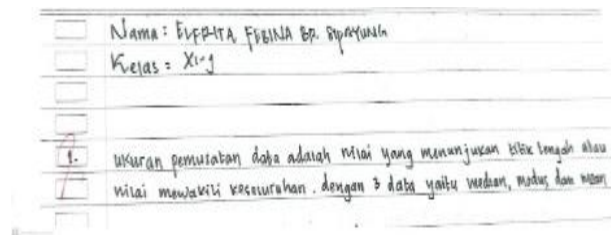 Nama : ELFRITA FEBINA BR. SIPAYUNG
Kelas : XI-J
1. ukuran pemusatan data adalah nilai yang menunjukan titik tengah atau
nilai mewakili keseluruhan. dengan 3 data yaitu median, modus, dan mean